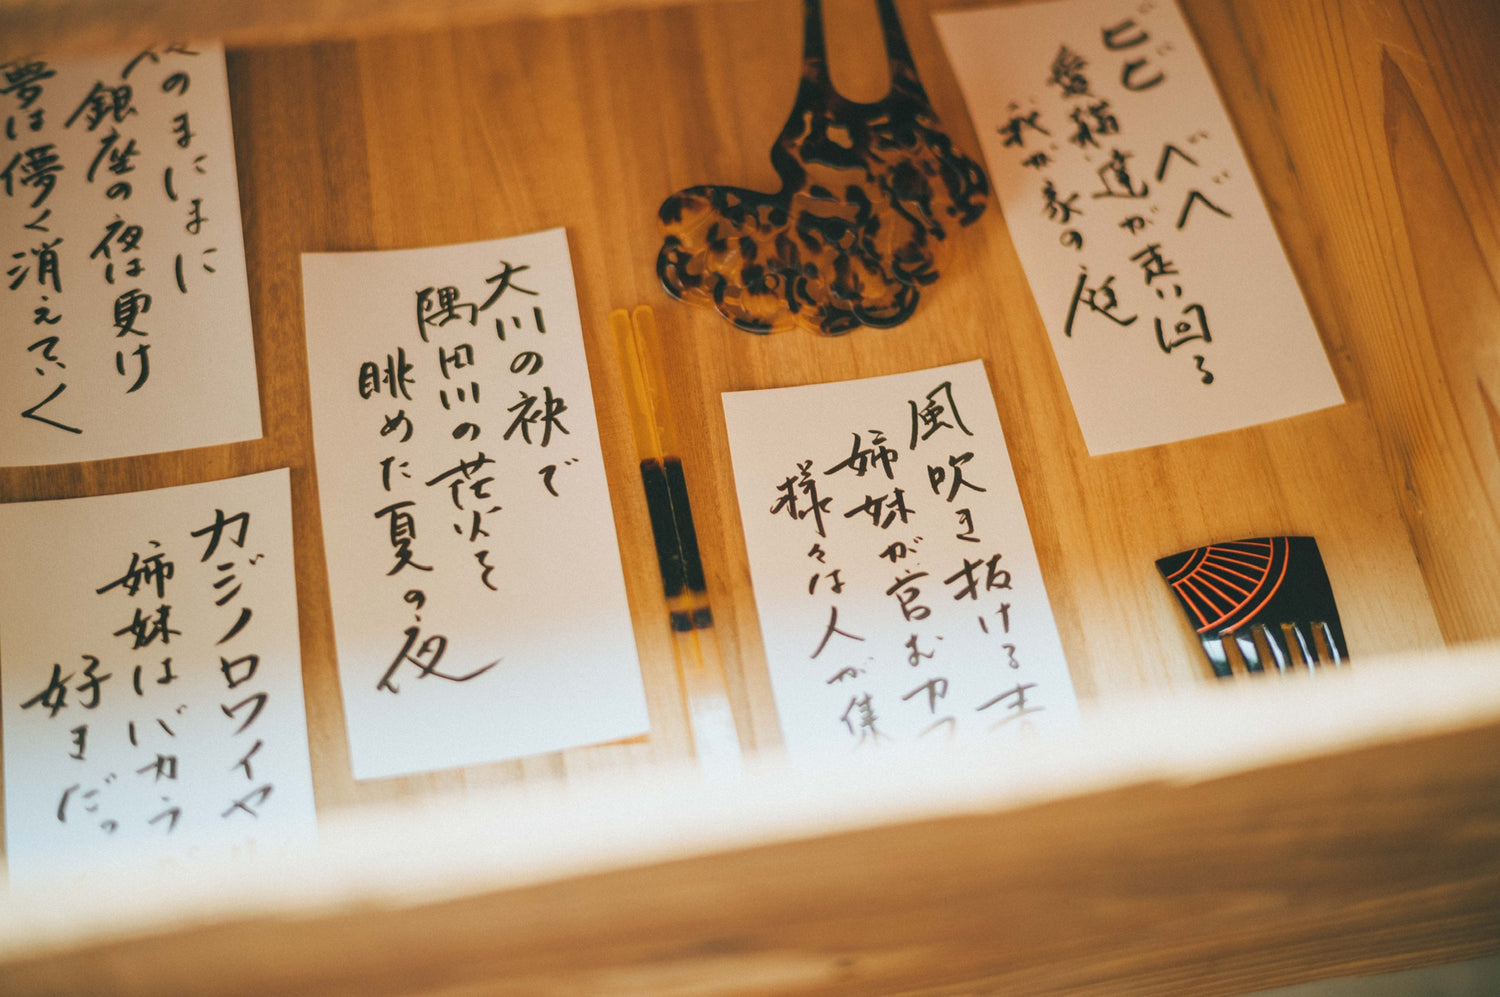 のまにまに
銀座の夜は更け
夢は儚く消えてい
く
大川の袂で
隅田川の花火を
眺めた夏の夜
ビビ ベベ
愛猫達が走り回る
我が家の庭
カジノロワイヤ
姉妹はバカラ
好きだっ
風吹き抜ける
姉妹が営むカフ
様々は人が集